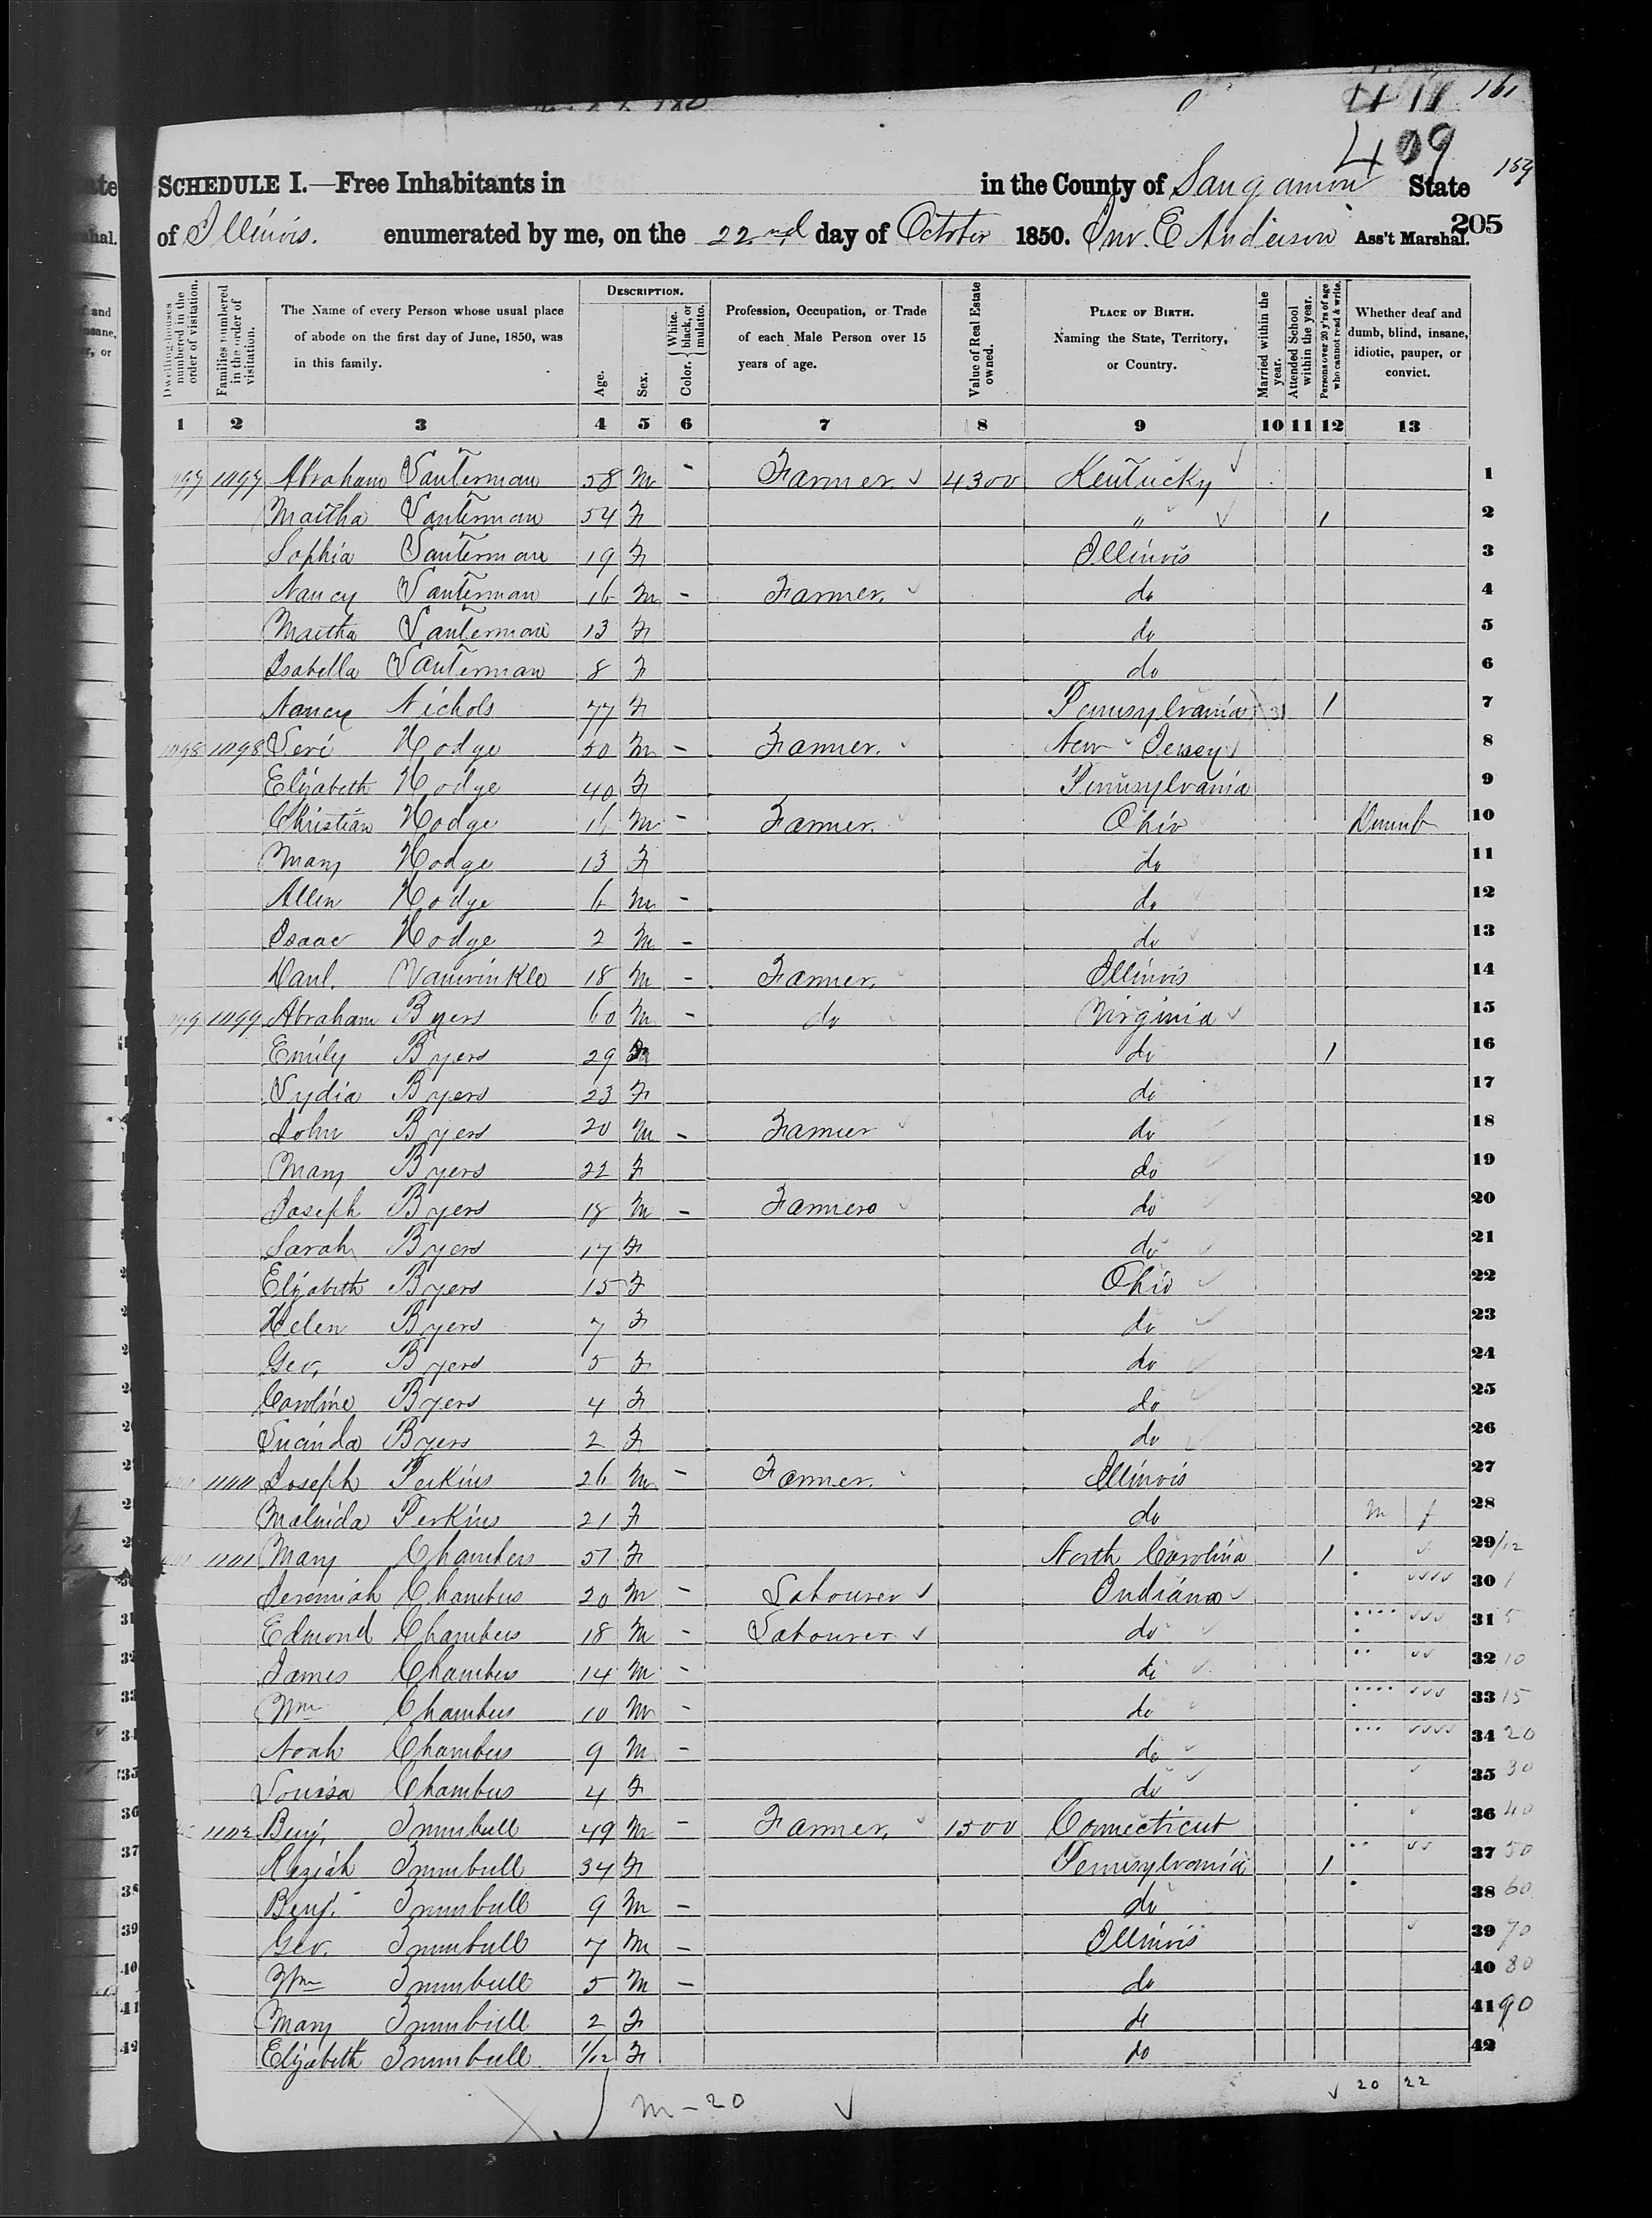 161
409
159
SCHEDULE I.—Free Inhabitants in in the County of Sangamon State
of Illinois. enumerated by me, on the 22nd day of October 1850. Jno. E Anderson Ass't Marshal.
205
Dwelling-houses numbered in the order of visitation.
Families numbered in the order of visitation.
The Name of every Person whose usual place of abode on the first day of June, 1850, was in this family.
DESCRIPTION.
Age.
Sex.
Color. { White, black, or mulatto.
Profession, Occupation, or Trade of each Male Person over 15 years of age.
Value of Real Estate owned.
PLACE OF BIRTH. Naming the State, Territory, or Country.
Married within the year.
Attended School within the year.
Persons over 20 y'rs of age who cannot read & write.
Whether deaf and dumb, blind, insane, idiotic, pauper, or convict.
1 2 3 4 5 6 7 8 9 10 11 12 13
1097 Abraham Lanterman 58 M - Farmer. 4300 Kentucky 1
Martha Lanterman 54 F " 1 2
Sophia Lanterman 19 F Illinois 3
Nancy Lanterman 16 M - Farmer. do 4
Martha Lanterman 13 F do 5
Isabella Lanterman 8 F do 6
Nancy Nichols 77 F Pennsylvania 1 7
1098 1098 Levi Hodge 50 M - Farmer. New Jersey 8
Elizabeth Hodge 40 F Pennsylvania 9
Christian Hodge 16 M - Farmer. Ohio Dumb 10
Mary Hodge 13 F do 11
Allen Hodge 6 M - do 12
Isaac Hodge 2 M - do 13
Danl. Vanwinkle 18 M - Farmer. Illinois 14
1099 Abraham Byers 60 M - do Virginia 15
Emily Byers 29 do 1 16
Lydia Byers 23 F do 17
John Byers 20 M - Farmer do 18
Mary Byers 22 F do 19
Joseph Byers 18 M - Farmer do 20
Sarah Byers 17 F do 21
Elizabeth Byers 15 F Ohio 22
Helen Byers 7 F do 23
Geo. Byers 5 F do 24
Caroline Byers 4 F do 25
Lucinda Byers 2 F do 26
1100 Joseph Perkins 26 M - Farmer. Illinois 27
Malinda Perkins 21 F do m f 28
1101 Mary Chambers 51 F North Carolina 1 29 /12
Jeremiah Chambers 20 M - Labourer Indiana 30 1
Edmond Chambers 18 M - Labourer do 31 5
James Chambers 14 M - do 32 10
Wm Chambers 10 M - do 33 15
Noah Chambers 9 M - do 34 20
Louisa Chambers 4 F do 35 30
1102 Benj. Trumbull 49 M - Farmer. 1500 Connecticut 36 40
Keziah Trumbull 34 F Pennsylvania 1 37 50
Benj. Trumbull 9 M - do 38 60
Geo. Trumbull 7 M - Illinois 39 70
Wm Trumbull 5 M - do 40 80
Mary Trumbull 2 F do 41 90
Elizabeth Trumbull 1/12 F do 42
m - 20
20 22